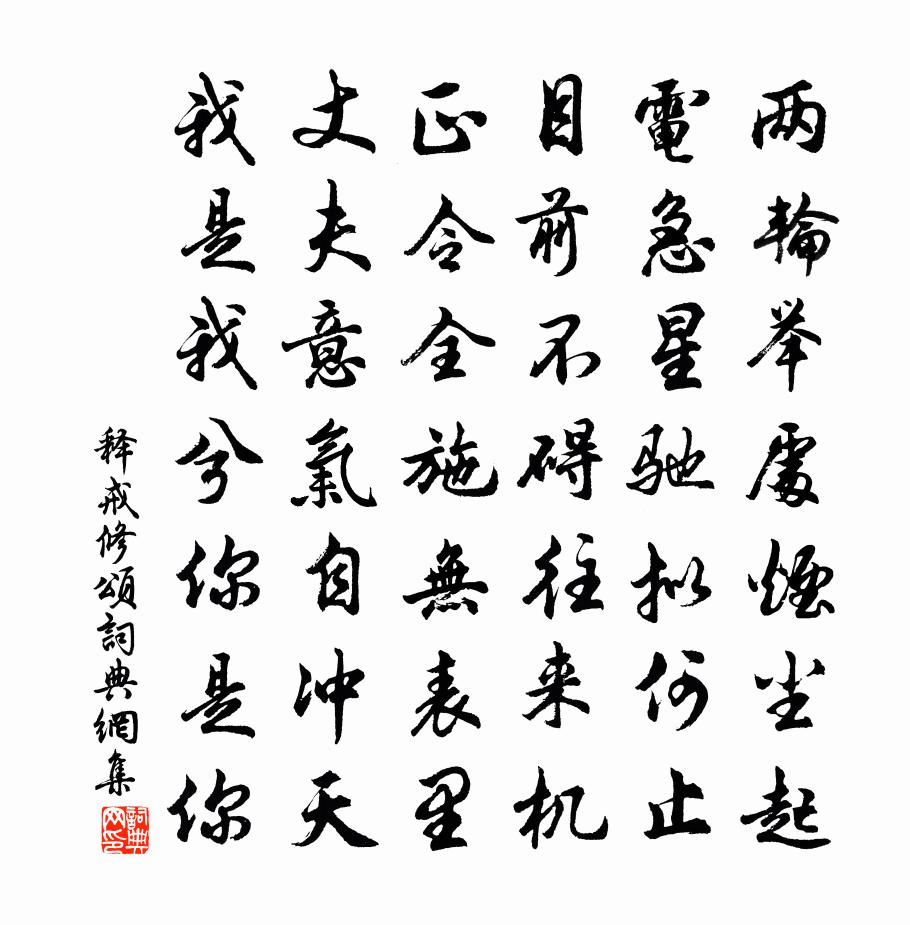 两輪举處煙尘起
電急星驰拟何止
目前不碍往来机
正令全施無表里
丈夫意氣自冲天
我是我兮你是你
释戒修頌詞典網集
詞典网印